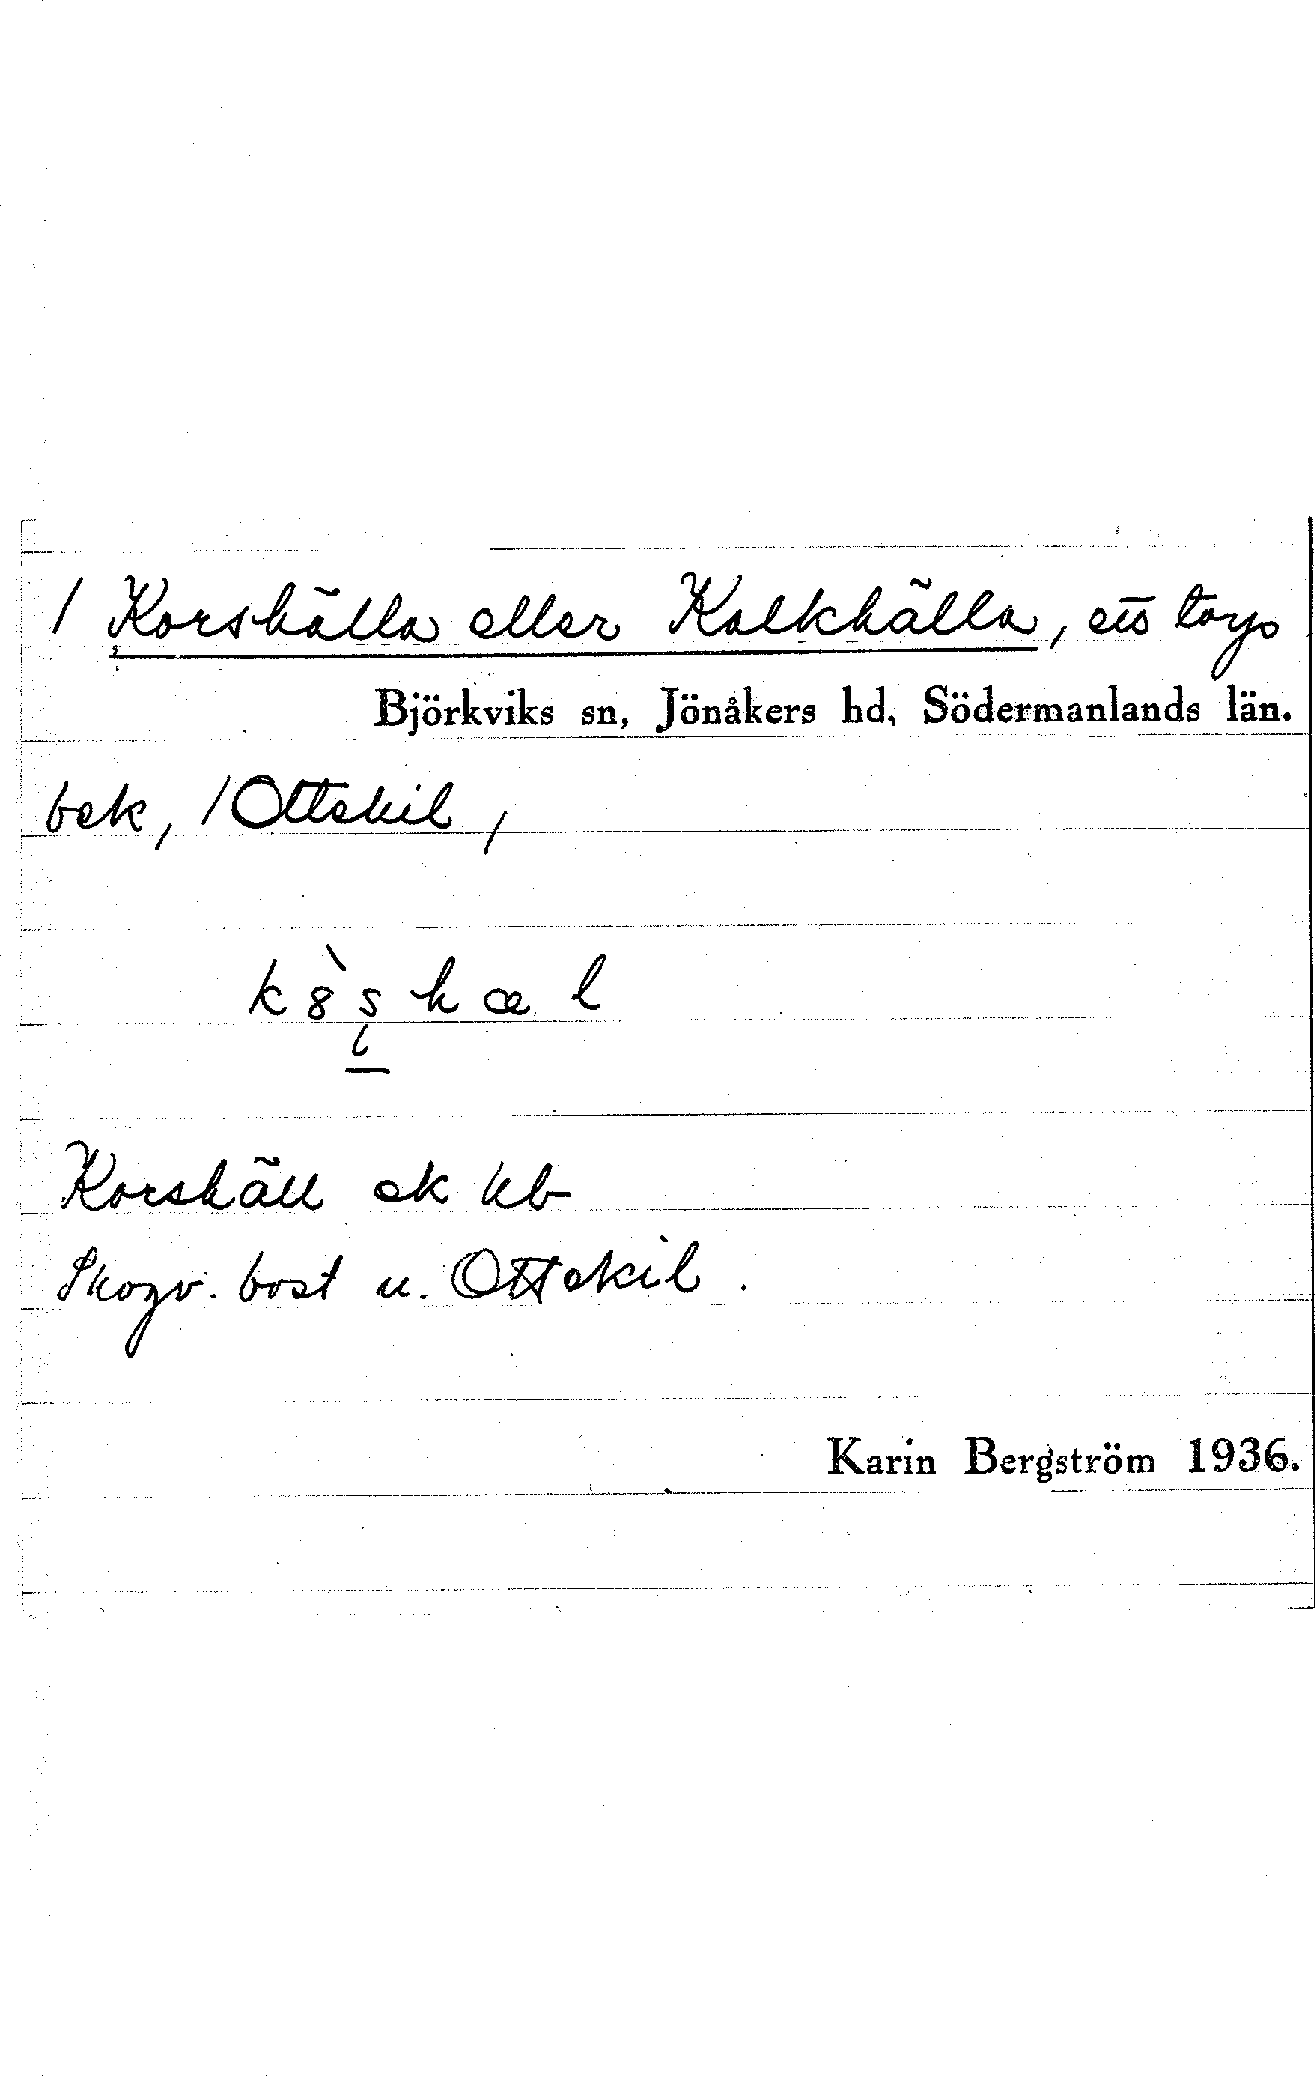 / Korshälla eller Kalkhälla, ett torp
Björkviks sn, Jönåkers hd, Södermanlands län.
bek, / Ottekil /
k 8̀ s h æ l
Korshäll ek kb
Skogv. bost u. Ottekil.
Karin Bergström 1936.